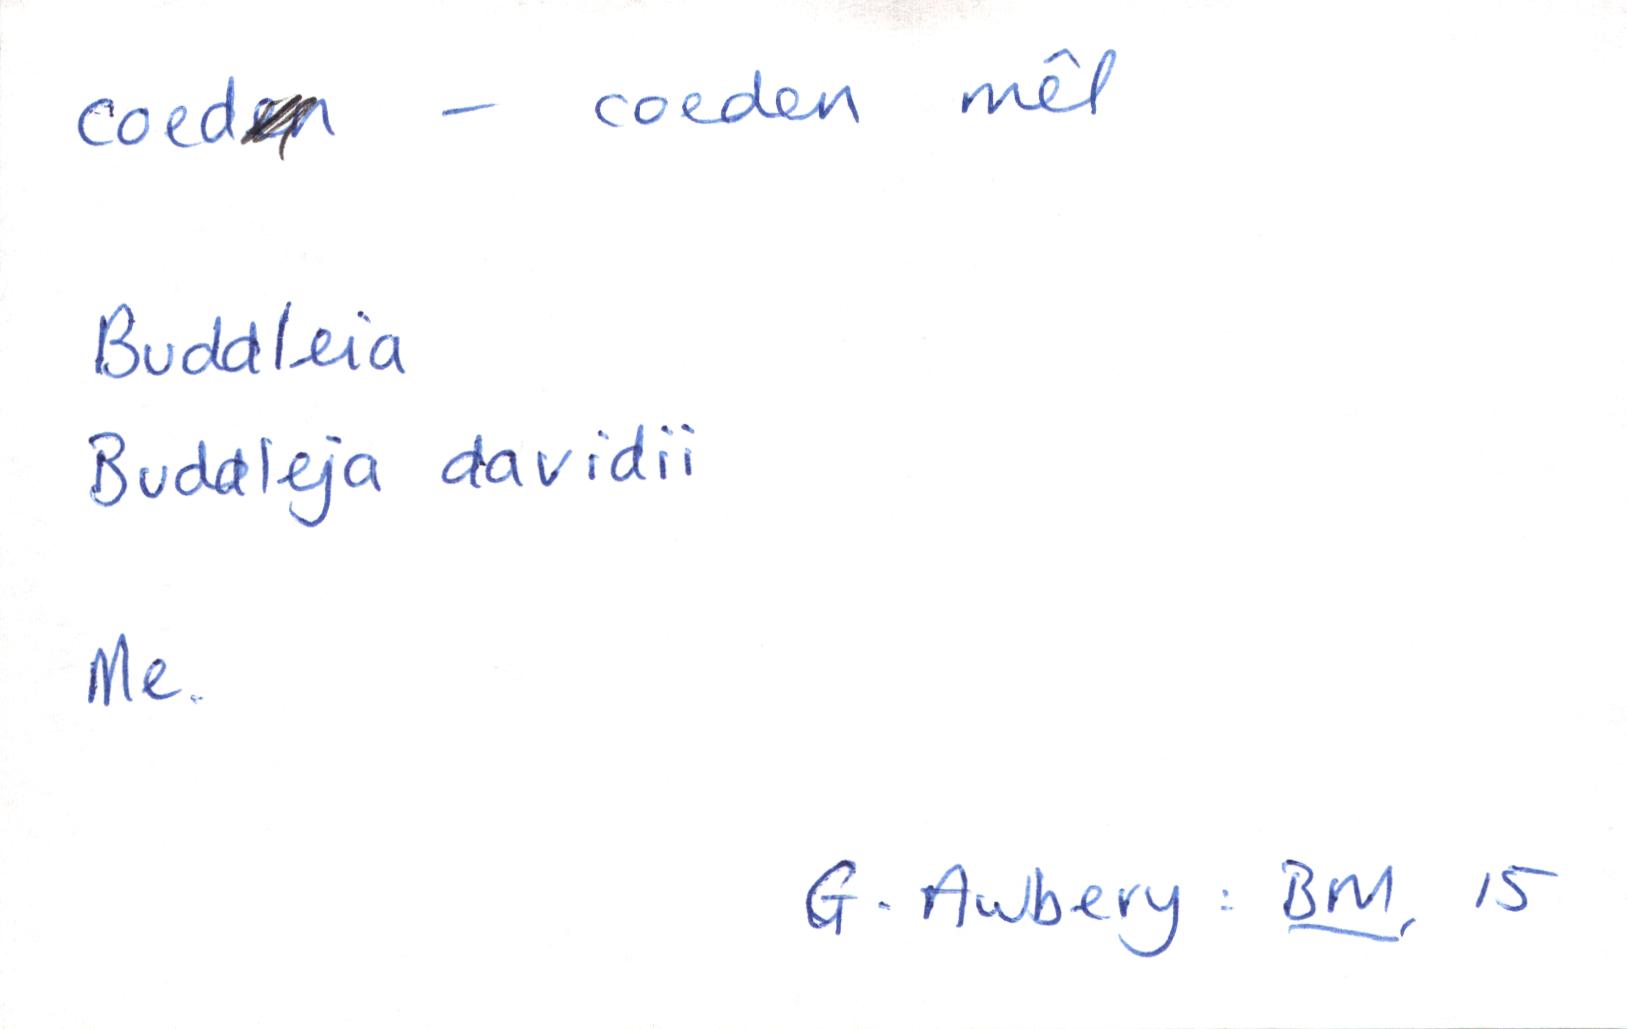 coed - coeden mêl
Buddleia
Buddleja davidii
Me.
G. Awbery: BM, 15